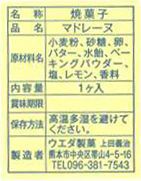 名称 焼菓子
品名 マドレーヌ
原材料名 小麦粉、砂糖、卵、
バター、水飴、ベー
キングパウダー、
塩、レモン、香料
内容量 1ヶ入
賞味期限
保存方法 高温多湿を避けて
ください。
製造者 ウエダ製菓 上田義治
熊本市中央区帯山4-5-16
TEL096-381-7543